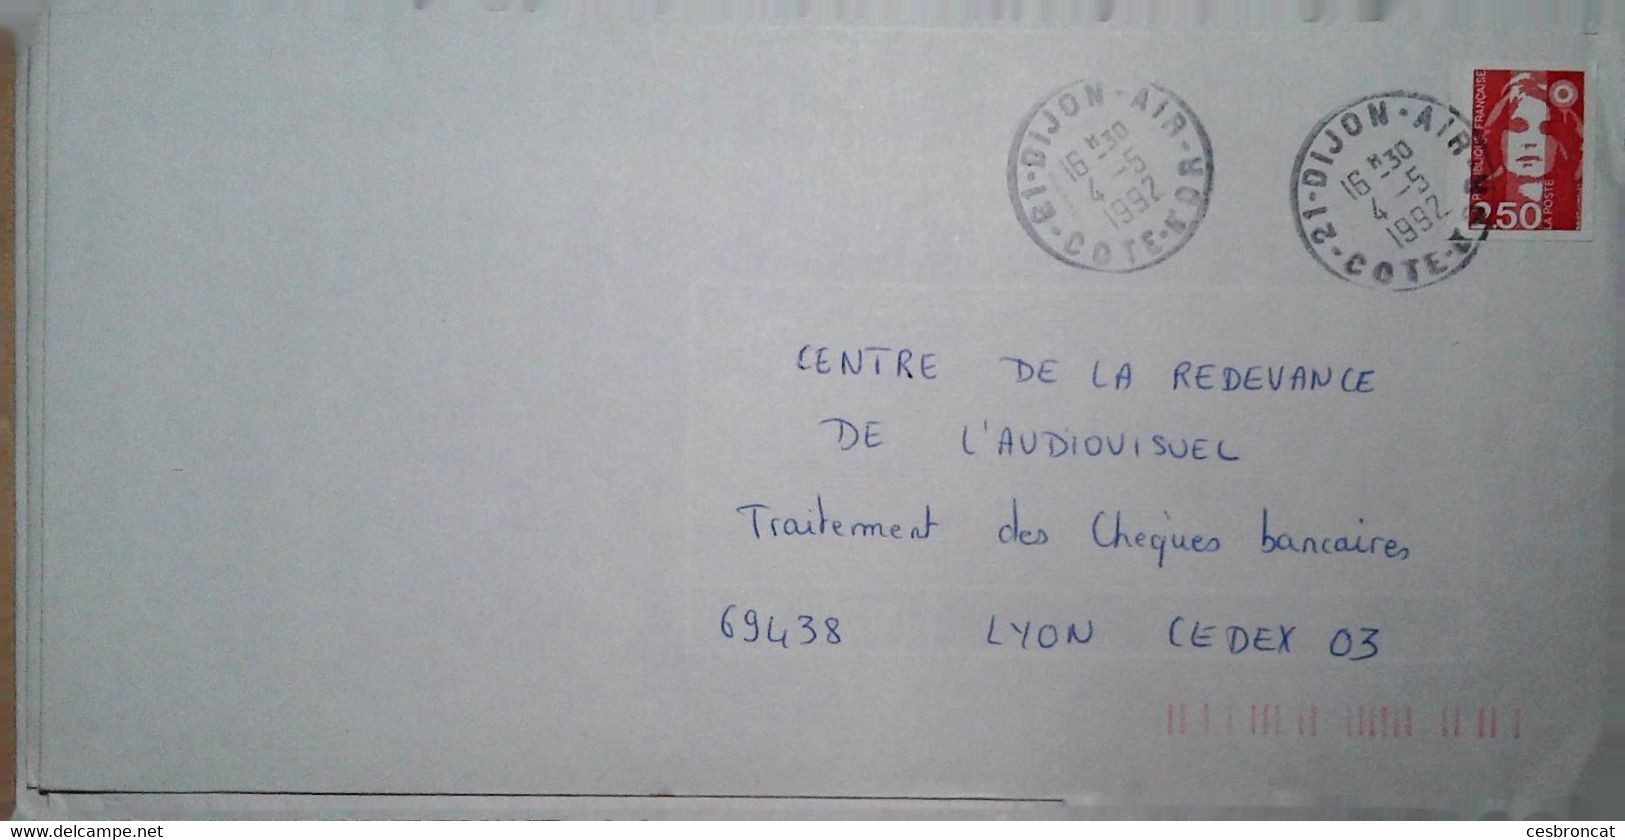 21-DIJON-AIR-
16 H 30
4-5
1992
COTE-D'OR
21-DIJON-AIR-
16 H 30
4-5
1992
COTE-D'OR
REPUBLIQUE FRANÇAISE
2.50
LA POSTE
CENTRE DE LA REDEVANCE
DE L'AUDIOVISUEL
Traitement des Chèques bancaires
69438 LYON CEDEX 03
www.delcampe.net
cesbroncat